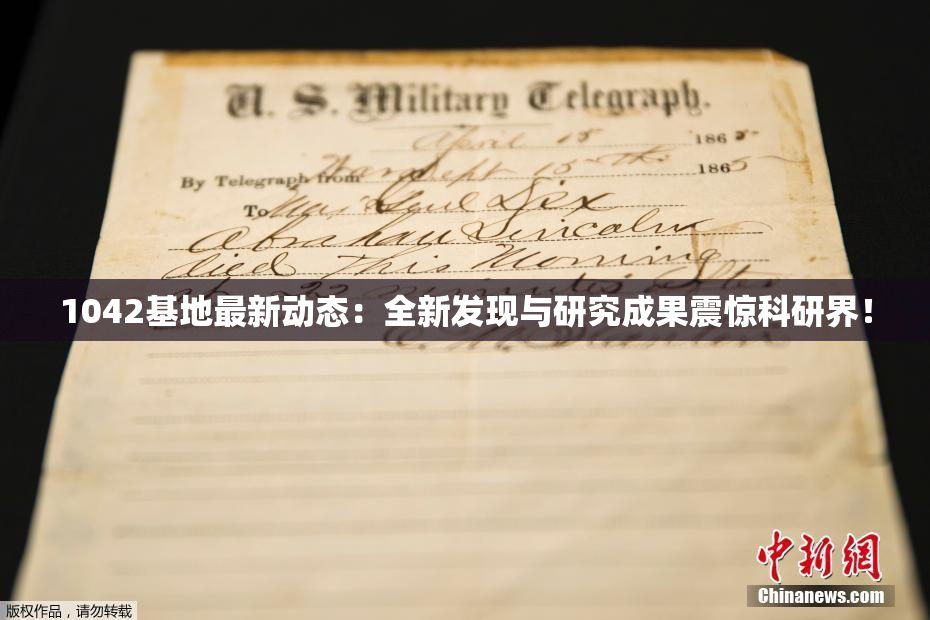 U. S. Military Telegraph.
April 15 1865
By Telegraph from War Dept 15th 1865
To Maj Genl Dix
Abraham Lincoln
died This Morning
at 22 minutes after
1042基地最新动态：全新发现与研究成果震惊科研界！
E. M. Stanton
中新網
Chinanews.com
版权作品，请勿转载